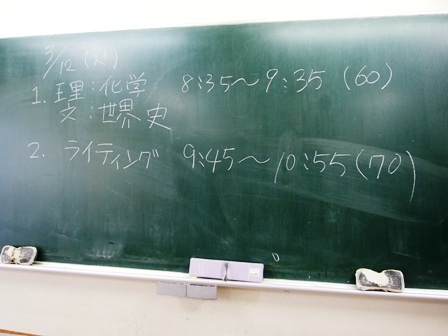 3/12 (火)
1. 理:化学 8:35〜9:35 (60)
文:世界史
2. ライティング 9:45〜10:55(70)